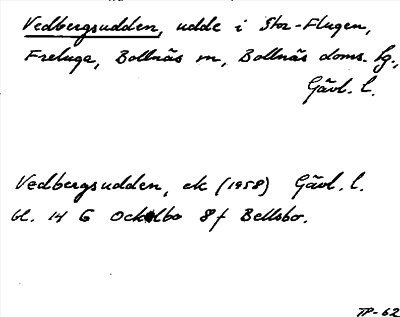 Vedbergsudden, udde i Stor-Flugen,
Freluga, Bollnäs sn, Bollnäs doms. hg.,
Gävl. l.
Vedbergsudden, ek (1958) Gävl. l.
bl. 14 G Ockelbo 8f Bellsbo.
TP-62